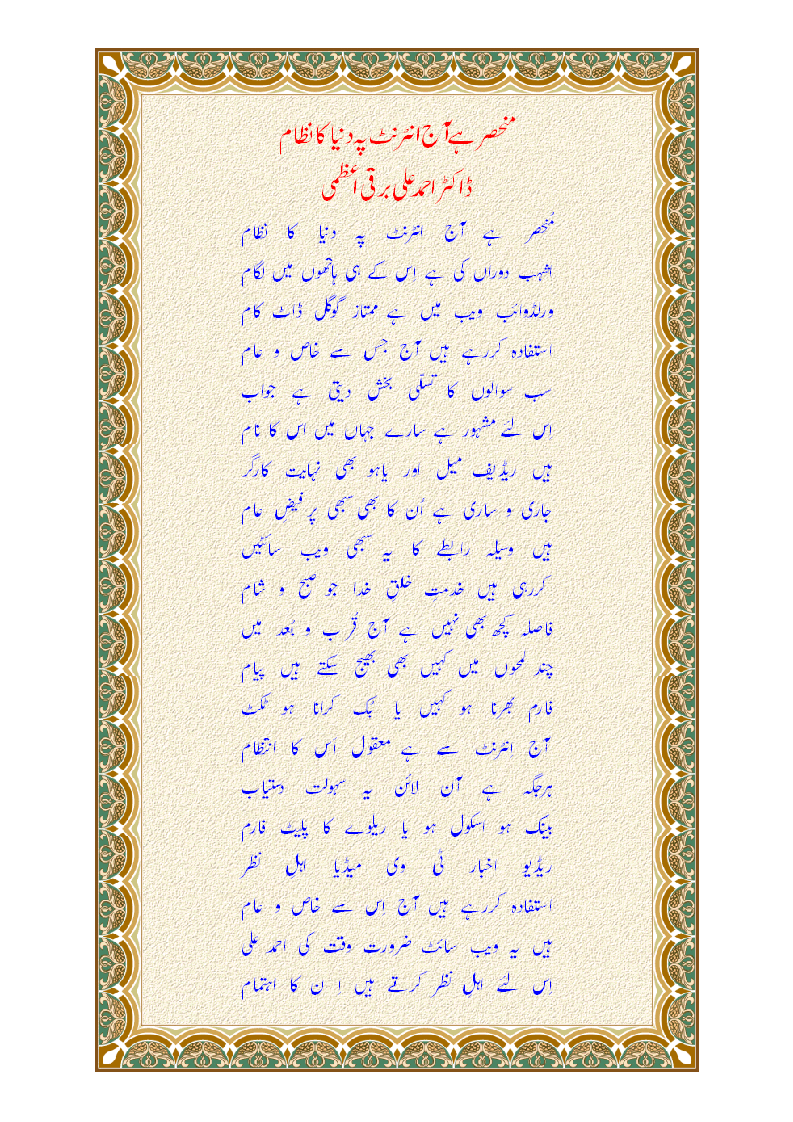 منحصر ہے آج انٹرنٹ پہ دنیا کا نظام
ڈاکٹر احمد علی برقی اعظمی
مُنحصر ہے آج انٹرنٹ پہ دنیا کا نظام
اشہب دوراں کی ہے اِس کے ہی ہاتھوں میں لگام
ورلڈوائب ویب میں ہے ممتاز گوگل ڈاٹ کام
استفادہ کررہے ہیں آج جس سے خاص و عام
سب سوالوں کا تسلّی بخش دیتی ہے جواب
اِس لئے مشہور ہے سارے جہاں میں اس کا نام
ہیں ریڈیف میل اور یاہو بھی نہایت کارگر
جاری و ساری ہے اُن کا بھی سبھی پر فیضِ عام
ہیں وسیلہ رابطے کا یہ سبھی ویب سائٹیں
کررہی ہیں خدمت خلقِ خدا جو صبح و شام
فاصلہ کچھ بھی نہیں ہے آج قُرب و بُعد میں
چند لمحوں میں کہیں بھی بھیج سکتے ہیں پیام
فارم بھرنا ہو کہیں یا بُک کرانا ہو ٹکٹ
آج انٹرنٹ سے ہے معقول اس کا انتظام
ہرجگہ ہے آن لائن یہ سہولت دستیاب
بینک ہو اسکول ہو یا ریلوے کا پلیٹ فارم
ریڈیو اخبار ٹی وی میڈیا اہل نظر
استفادہ کررہے ہیں آج اس سے خاص و عام
ہیں یہ ویب سائٹ ضرورت وقت کی احمد علی
اِس لئے اہلِ نظر کرتے ہیں اِ ن کا اہتمام